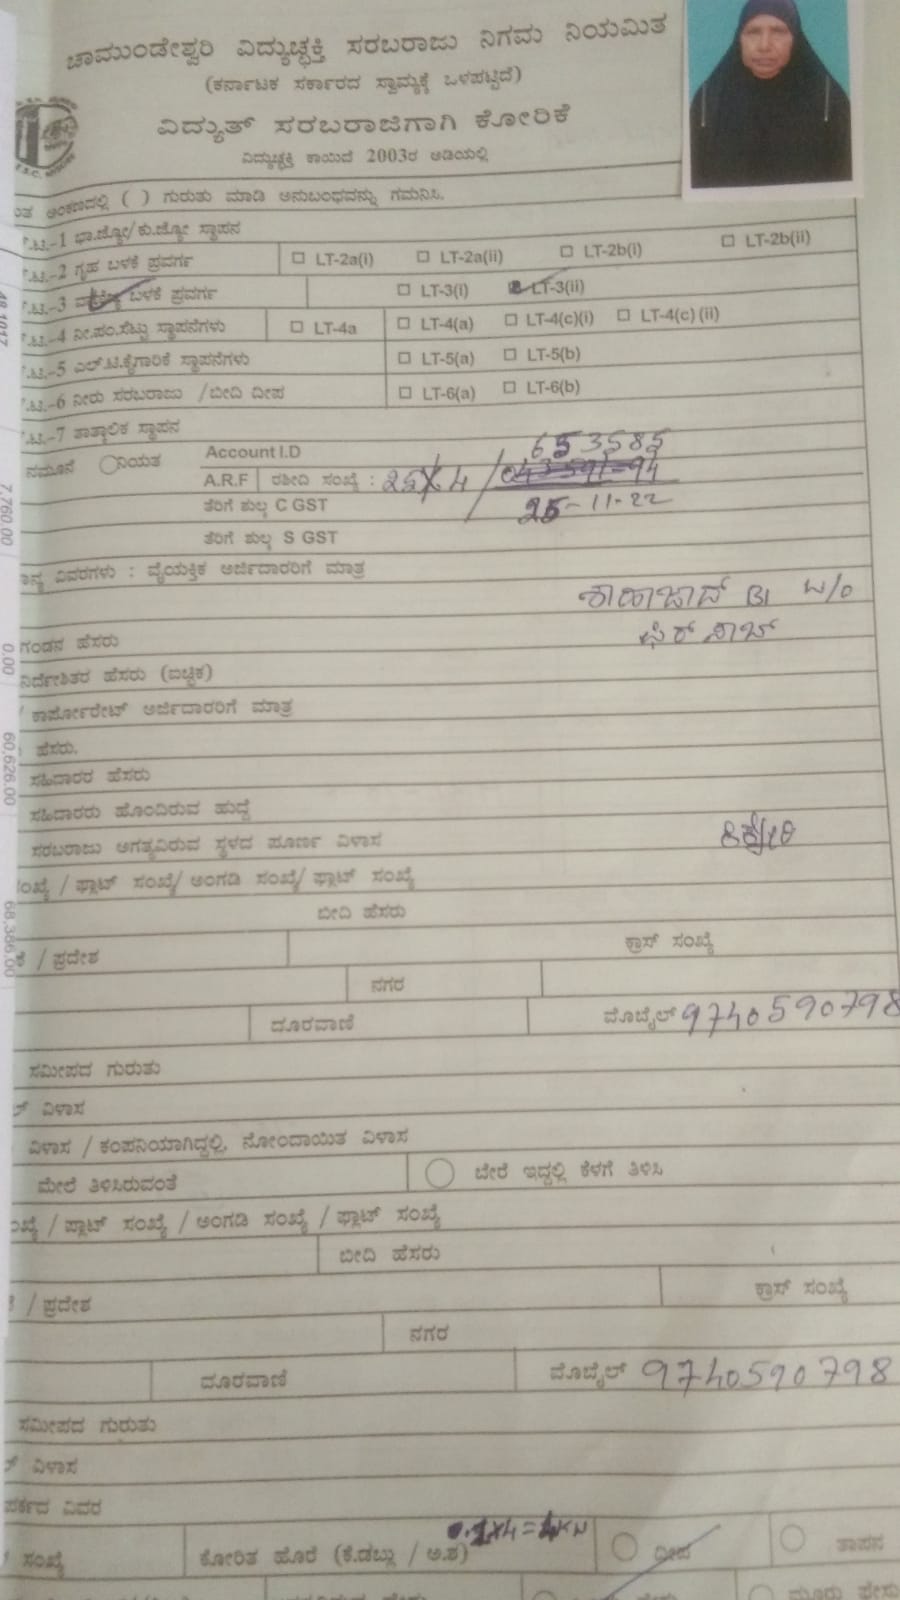 ಚಾಮುಂಡೇಶ್ವರಿ ವಿದ್ಯುಚ್ಛಕ್ತಿ ಸರಬರಾಜು ನಿಗಮ ನಿಯಮಿತ
(ಕರ್ನಾಟಕ ಸರ್ಕಾರದ ಸ್ವಾಮ್ಯಕ್ಕೆ ಒಳಪಟ್ಟಿದೆ)
ವಿದ್ಯುತ್ ಸರಬರಾಜಿಗಾಗಿ ಕೋರಿಕೆ
ವಿದ್ಯುಚ್ಛಕ್ತಿ ಕಾಯಿದೆ 2003ರ ಅಡಿಯಲ್ಲಿ
ಅಂಕಣದಲ್ಲಿ ( ) ಗುರುತು ಮಾಡಿ ಅನುಬಂಧವನ್ನು ಗಮನಿಸಿ.
.ಟಿ.-1 ಭಾ.ಜ್ಯೋ/ಕು.ಜ್ಯೋ ಸ್ಥಾಪನ
.ಟಿ.-2 ಗೃಹ ಬಳಕೆ ಪ್ರವರ್ಗ LT-2a(i) LT-2a(ii) LT-2b(i) LT-2b(ii)
.ಟಿ.-3 ಬಳಕೆ ಪ್ರವರ್ಗ LT-3(i) LT-3(ii)
.ಟಿ.-4 ನೀ.ಪಂ.ಸೆಟ್ಟು ಸ್ಥಾಪನೆಗಳು LT-4a LT-4(a) LT-4(c)(i) LT-4(c) (ii)
.ಟಿ.-5 ಎಲ್.ಟಿ.ಕೈಗಾರಿಕೆ ಸ್ಥಾಪನೆಗಳು LT-5(a) LT-5(b)
.ಟಿ.-6 ನೀರು ಸರಬರಾಜು /ಬೀದಿ ದೀಪ LT-6(a) LT-6(b)
.ಟಿ.-7 ತಾತ್ಕಾಲಿಕ ಸ್ಥಾಪನ
ನಮೂನೆ ನಿಯತ Account I.D 653585
A.R.F ರಶೀದಿ ಸಂಖ್ಯೆ :
ತೆರಿಗೆ ಶುಲ್ಕ C GST 25-11-22
ತೆರಿಗೆ ಶುಲ್ಕ S GST
ವಿವರಗಳು : ವೈಯಕ್ತಿಕ ಅರ್ಜಿದಾರರಿಗೆ ಮಾತ್ರ
ಶಾಹಾಜಾದ್ BI W/O
ಗಂಡನ ಹೆಸರು
ನಿರ್ದೇಶಿತರ ಹೆಸರು (ಐಚ್ಛಿಕ)
/ ಕಾರ್ಪೋರೇಟ್ ಅರ್ಜಿದಾರರಿಗೆ ಮಾತ್ರ
ಹೆಸರು.
ಸಹಿದಾರರ ಹೆಸರು
ಸಹಿದಾರರು ಹೊಂದಿರುವ ಹುದ್ದೆ
ಸರಬರಾಜು ಅಗತ್ಯವಿರುವ ಸ್ಥಳದ ಪೂರ್ಣ ವಿಳಾಸ
/ ಫ್ಲಾಟ್ ಸಂಖ್ಯೆ/ ಅಂಗಡಿ ಸಂಖ್ಯೆ/ ಫ್ಲಾಟ್ ಸಂಖ್ಯೆ
ಬೀದಿ ಹೆಸರು
/ ಪ್ರದೇಶ ಕ್ರಾಸ್ ಸಂಖ್ಯೆ
ನಗರ
ದೂರವಾಣಿ ಮೊಬೈಲ್ 9740590798
ಸಮೀಪದ ಗುರುತು
ವಿಳಾಸ
ವಿಳಾಸ / ಕಂಪನಿಯಾಗಿದ್ದಲ್ಲಿ, ನೋಂದಾಯಿತ ವಿಳಾಸ
ಮೇಲೆ ತಿಳಿಸಿರುವಂತೆ ಬೇರೆ ಇದ್ದಲ್ಲಿ ಕೆಳಗೆ ತಿಳಿಸಿ
/ ಪ್ಲಾಟ್ ಸಂಖ್ಯೆ / ಅಂಗಡಿ ಸಂಖ್ಯೆ / ಫ್ಲಾಟ್ ಸಂಖ್ಯೆ
ಬೀದಿ ಹೆಸರು
/ ಪ್ರದೇಶ ಕ್ರಾಸ್ ಸಂಖ್ಯೆ
ನಗರ
ದೂರವಾಣಿ ಮೊಬೈಲ್ 9740590798
ಸಮೀಪದ ಗುರುತು
ವಿಳಾಸ
ವಿವರ
ಸಂಖ್ಯೆ ಕೋರಿತ ಹೊರೆ (ಕೆ.ಡಬ್ಲು / ಅ.ಶ) ದೀಪ ತಾಪನ
7,760.00
0.00
60,626.00
68,386.00